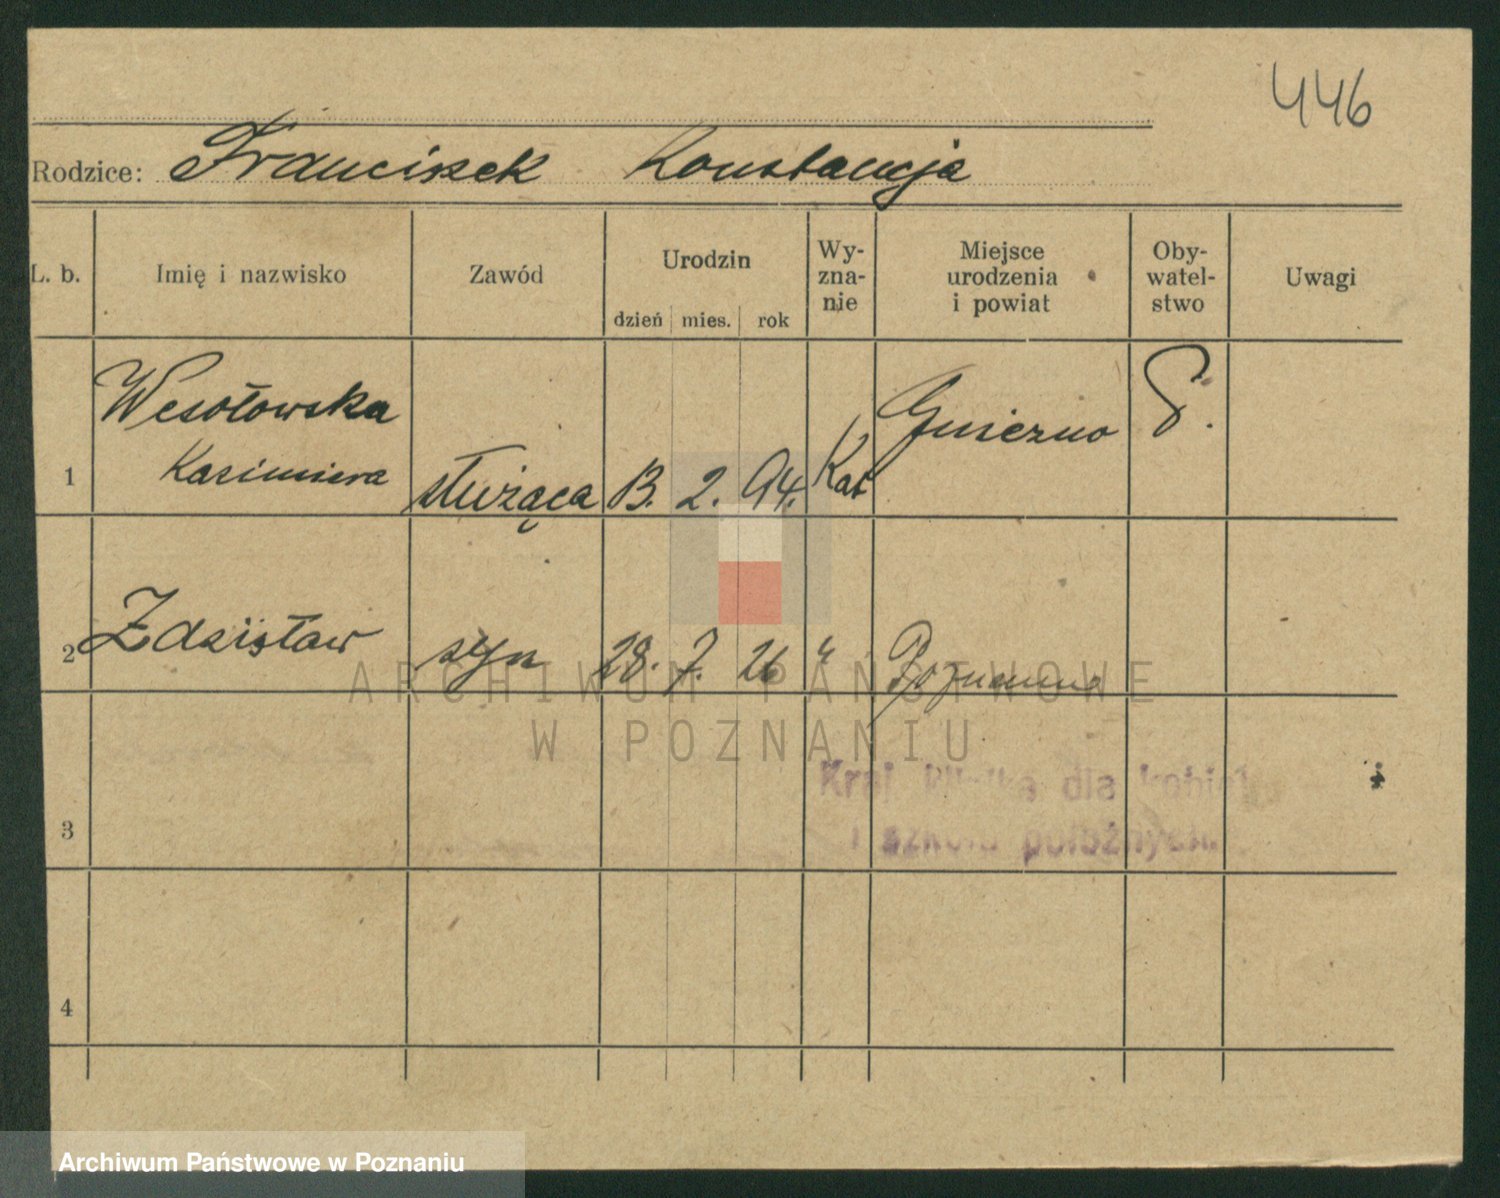 446
Rodzice: Franciszek Konstancja
L. b. Imię i nazwisko Zawód Urodzin dzień mies. rok Wy-zna-nie Miejsce urodzenia i powiat Oby-watel-stwo Uwagi
Wesołowska Gniezno P.
1 Kazimiera służąca 13. 2. 94. Kat
2 Zdzisław syn 28. 7. 26 "
ARCHIWUM PAŃSTWOWE
W POZNANIU
Kraj. klinika dla kobiet
3 i szkoła położnych.
4
Archiwum Państwowe w Poznaniu